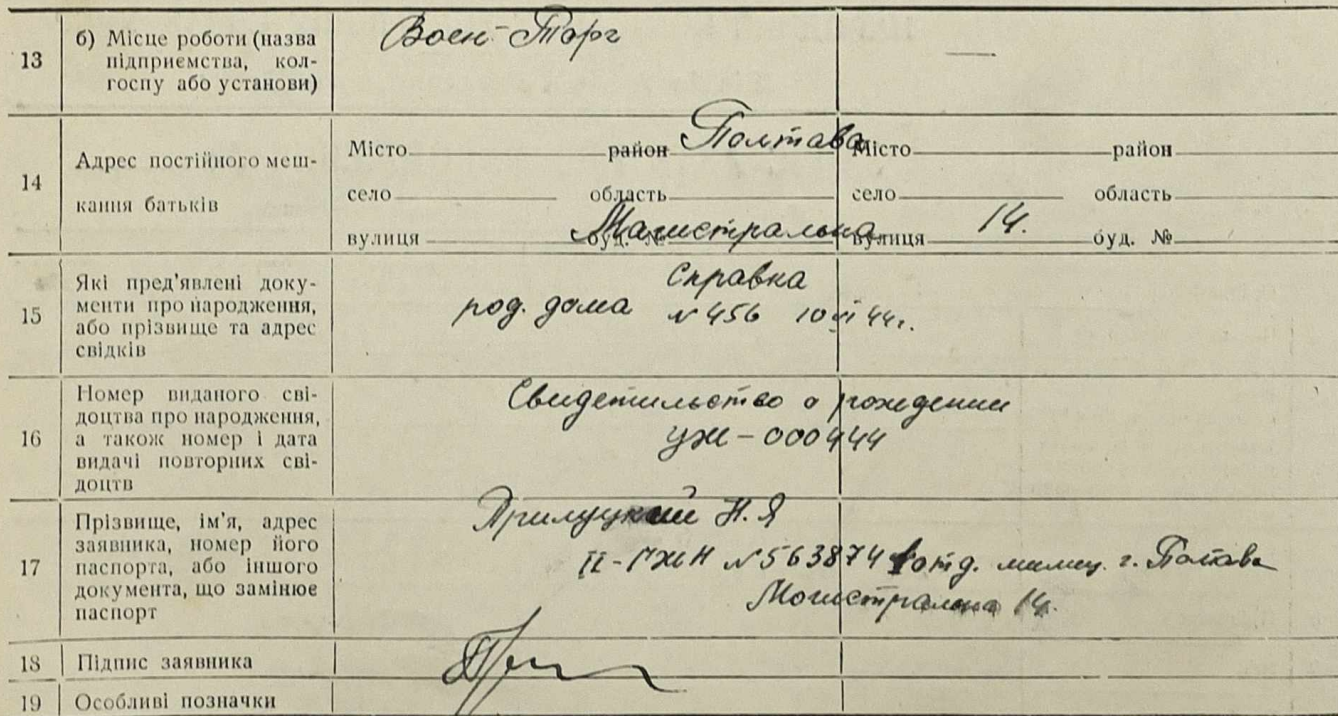 13 б) Місце роботи (назва підприємства, кол-госпу або установи) Воен-Торг —
14 Адрес постійного меш-кання батьків
Місто район Полтава Місто район
село область село область
вулиця буд. № Магистральна вулиця 14. буд. №
15 Які пред'явлені доку-менти про народження, або прізвище та адрес свідків
Справка
род. дома № 456 10 VI 44г.
16 Номер виданого сві-доцтва про народження, а також номер і дата видачі повторних сві-доцтв
Свидетильство о рождении
УЖ-000444
17 Прізвище, ім'я, адрес заявника, номер його паспорта, або іншого документа, що замінює паспорт
Прилуцкий Н.Я
№ 563874 1 отд. милиц. г. Полтава
Могистрална 14.
18 Підпис заявника
19 Особливі позначки